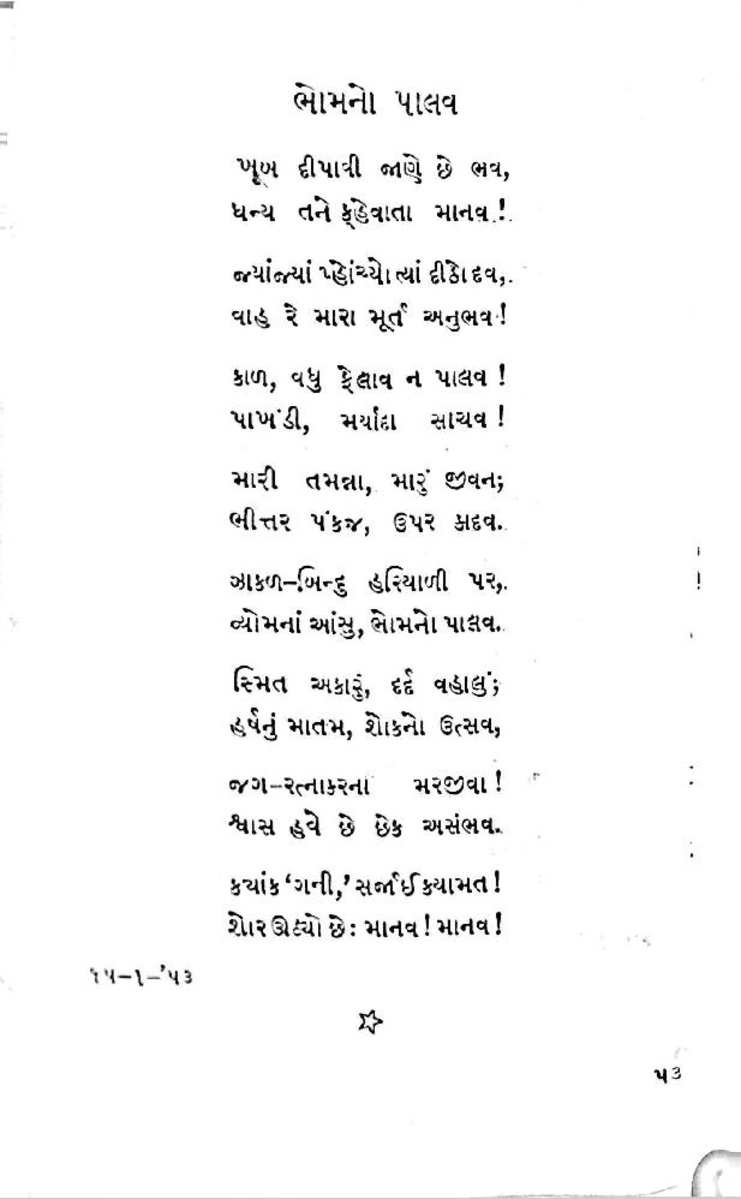 ભોમનો પાલવ
ખૂબ દીપાવી જાણે છે ભવ,
ધન્ય તને ક્હેવાતા માનવ!
જ્યાંજ્યાં પ્હોંચ્યો ત્યાં દીઠો દવ,
વાહ રે મારા મૂર્ત અનુભવ!
કાળ, વધુ ફેલાવ ન પાલવ!
પાખંડી, મર્યાદા સાચવ!
મારી તમન્ના, મારું જીવન;
ભીત્તર પંકજ, ઉપર કાદવ.
ઝાકળ–બિન્દુ હરિયાળી પર,
વ્યોમનાં આંસુ, ભોમનો પાલવ.
સ્મિત અકારું, દર્દ વહાલું;
હર્ષનું માતમ, શોકનો ઉત્સવ,
જગ–રત્નાકરના મરજીવા!
શ્વાસ હવે છે છેક અસંભવ.
કયાંક ‘ગની,’ સર્જાઈ કયામત!
શોર ઊઠ્યો છેઃ માનવ! માનવ!
૧૫–૧–’૫૩
૫૩